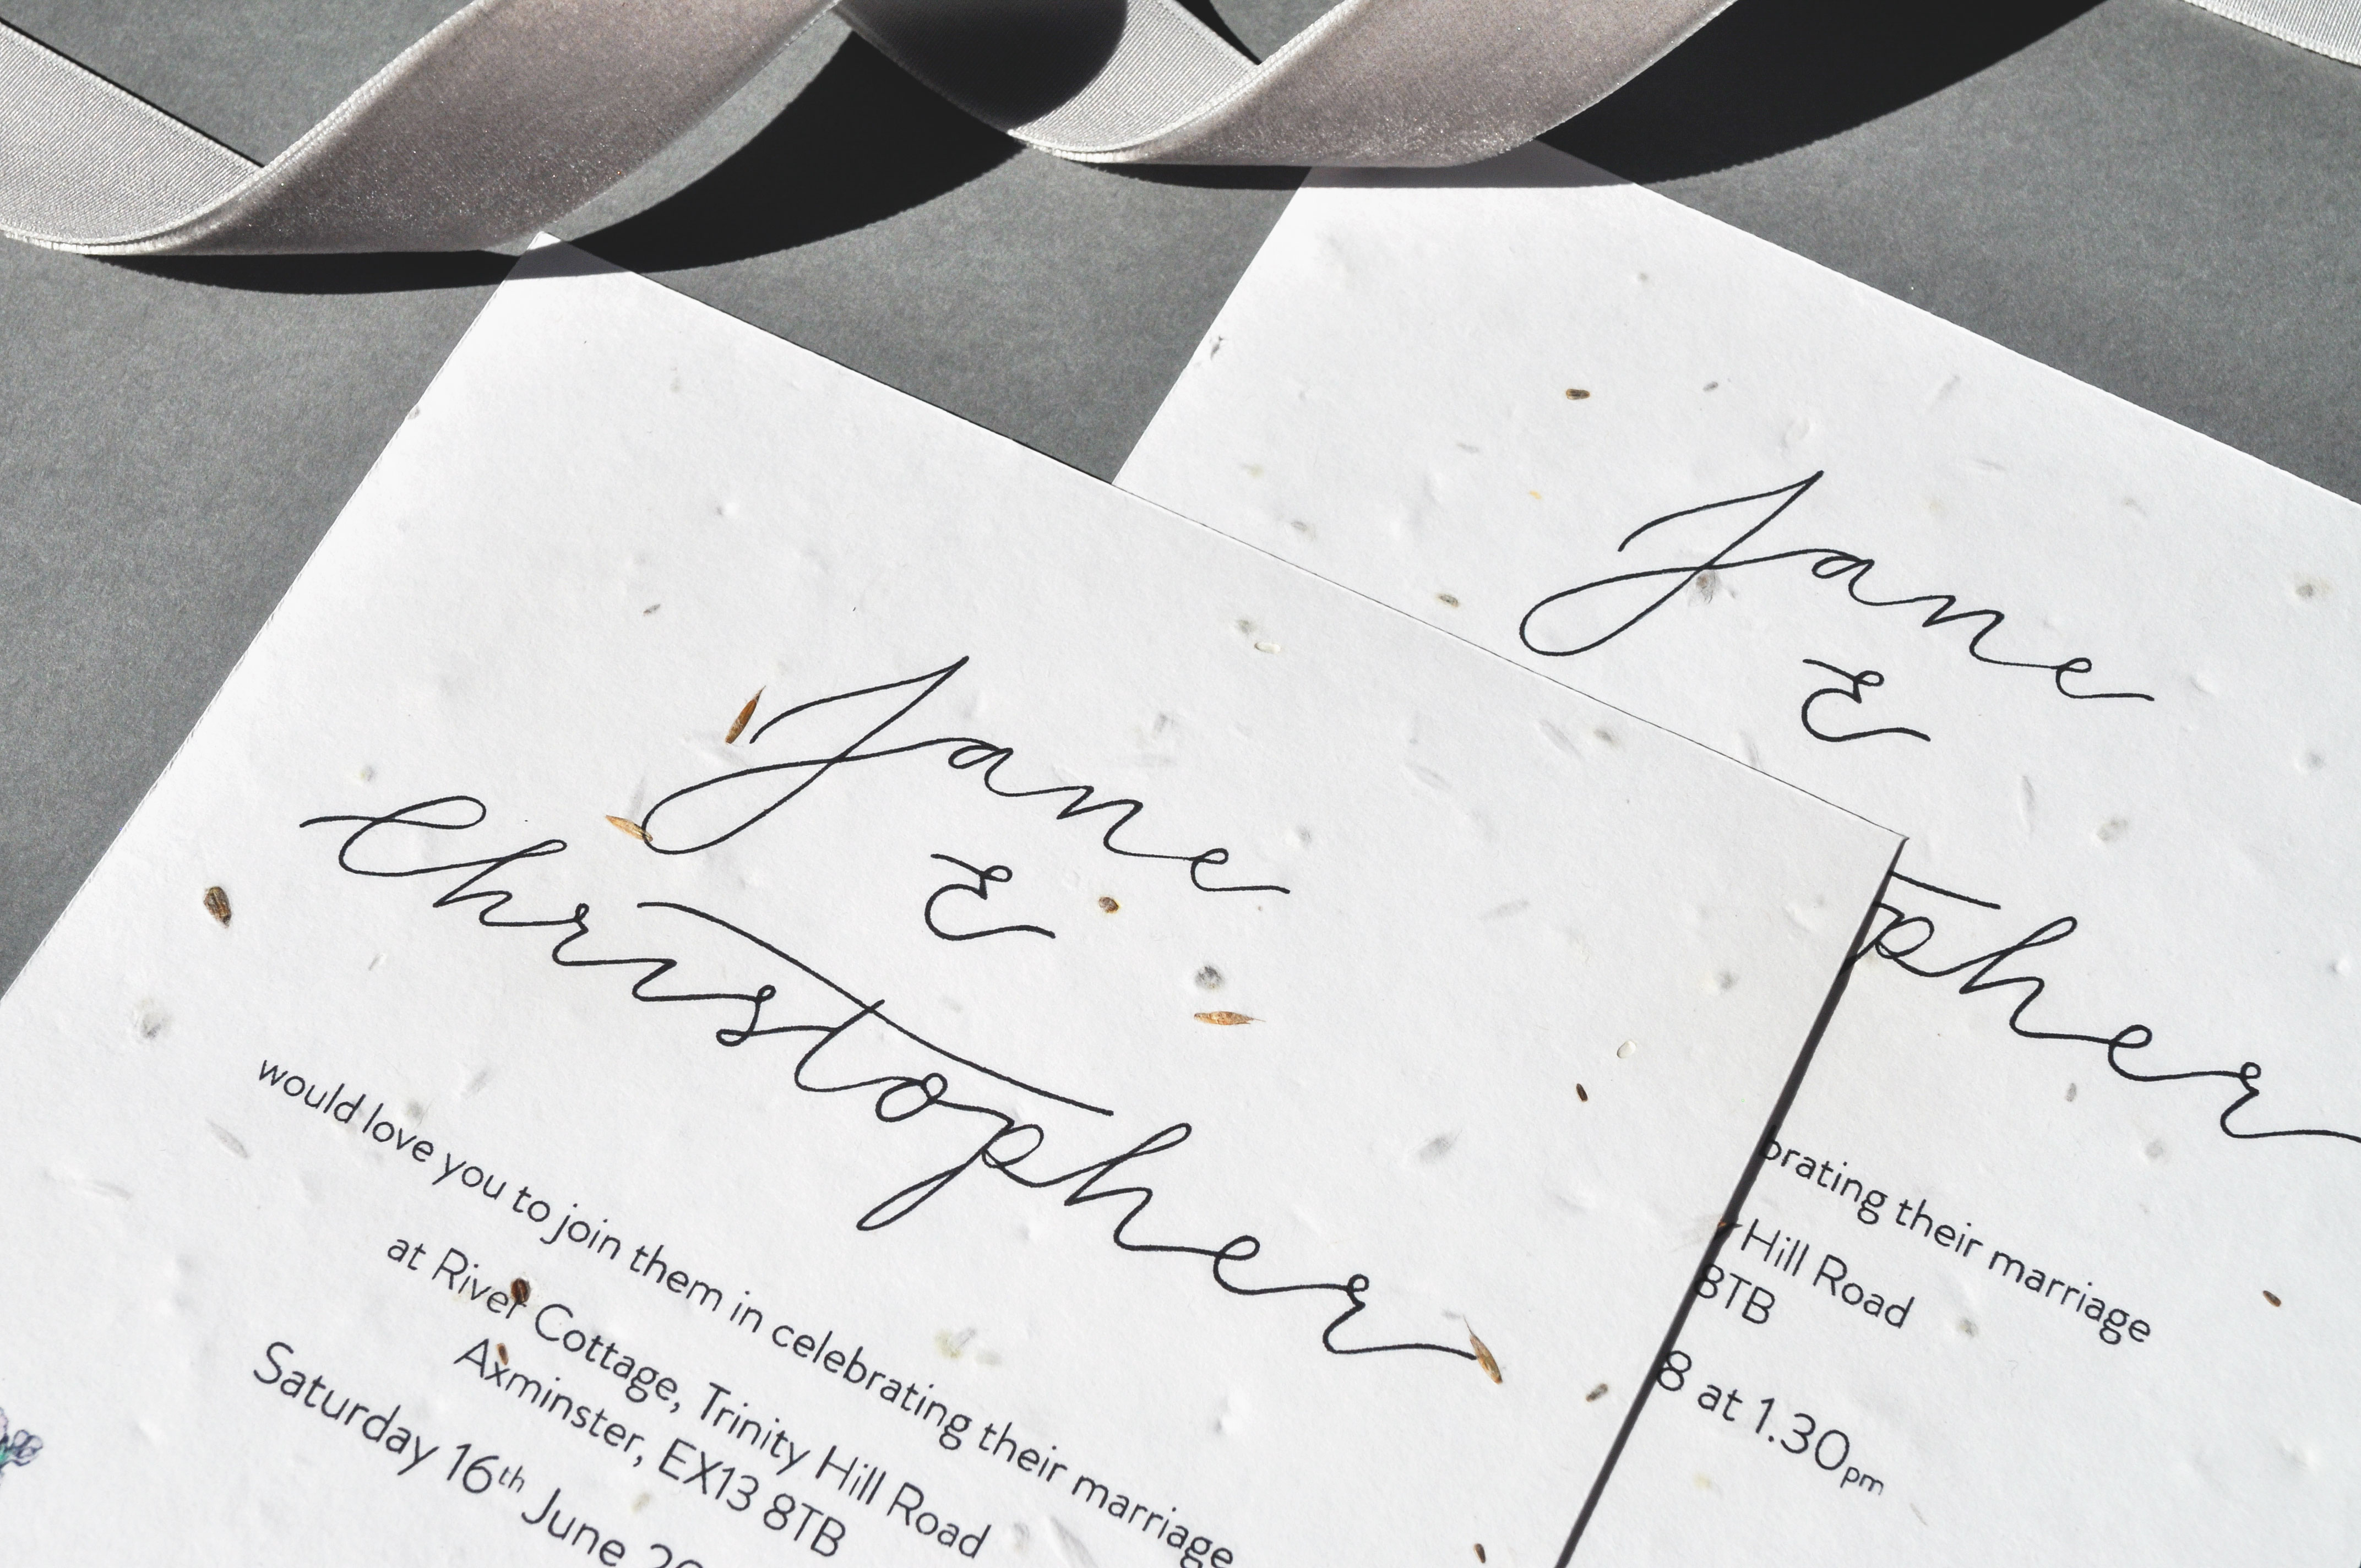 Jane
&
Christopher
would love you to join them in celebrating their marriage
at River Cottage, Trinity Hill Road
Axminster, EX13 8TB
Saturday 16th June
Jane
&
pher
brating their marriage
Hill Road
8TB
8 at 1.30pm